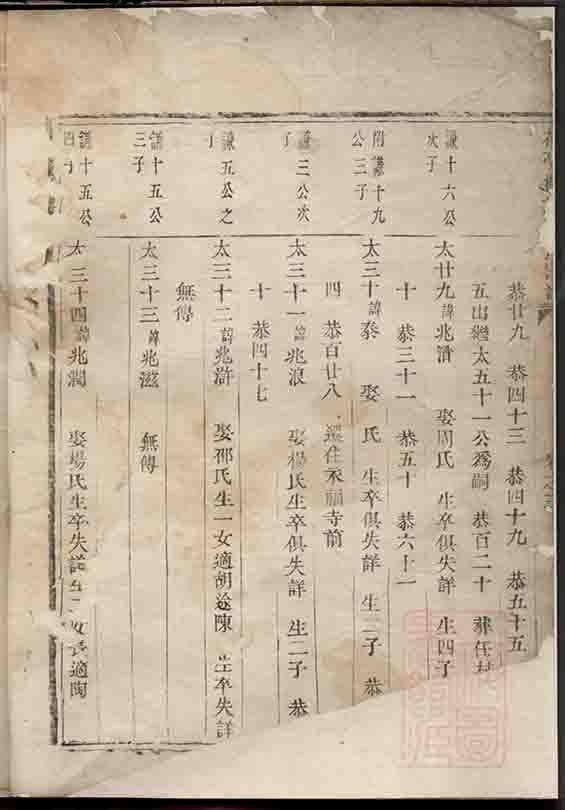 恭廿九 恭四十三 恭四十九 恭五十五
五出繼太五十一公為嗣 恭百二十 葬任村
謙十六公
次子
太廿九諱兆濟 娶周氏 生卒俱失詳 生四子
十 恭三十一 恭五十 恭六十一
謙十九
公三子
太三十諱泰 娶 氏 生卒俱失詳 生二子 恭
四 恭百廿八 遷住永福寺前
謙三公次
子
太三十一諱兆浪 娶楊氏生卒俱失詳 生二子 恭
十 恭四十七
謙五公之
子
太三十二諱兆滸 娶邵氏生一女適胡途陳 生卒失詳
無傳
謙十五公
三子
太三十三諱兆滋 無傳
謙十五公
四子
太三十四諱兆潤 娶楊氏生卒失詳生二女長適陶